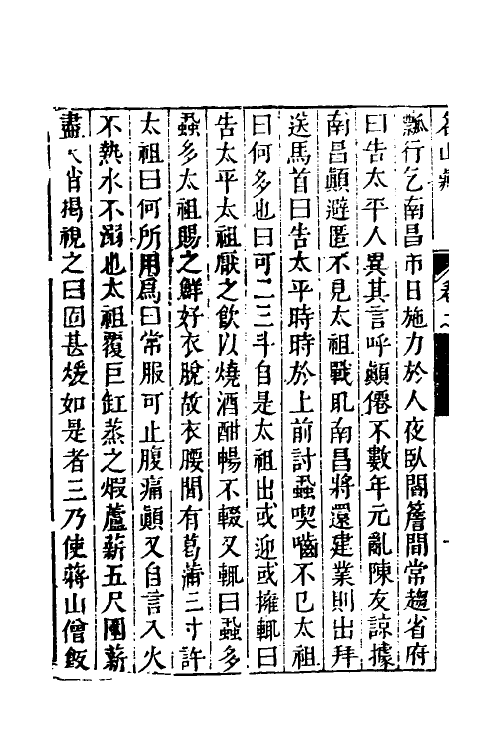 名山藏 卷之
瓢行乞南昌市日施力於人夜臥閭簷間常趨省府
曰告太平人異其言呼顛僊不數年元亂陳友諒據
南昌顛避匿不見太祖戰取南昌將還建業則出拜
送馬首曰告太平時時於上前討蝨喫嚙不已太祖
曰何多也曰可二三斗自是太祖出或迎或擁輒曰
告太平太祖厭之飲以燒酒酣暢不輟又輒曰蝨多
蝨多太祖賜之鮮好衣脫故衣腰間有葛蒲三寸許
太祖曰何所用爲曰常服可止腹痛顛又自言入火
不熱水不溺也太祖覆巨缸蒸之煅蘆薪五尺圍薪
盡火省揭視之曰固甚煖如是者三乃使蔣山僧飯